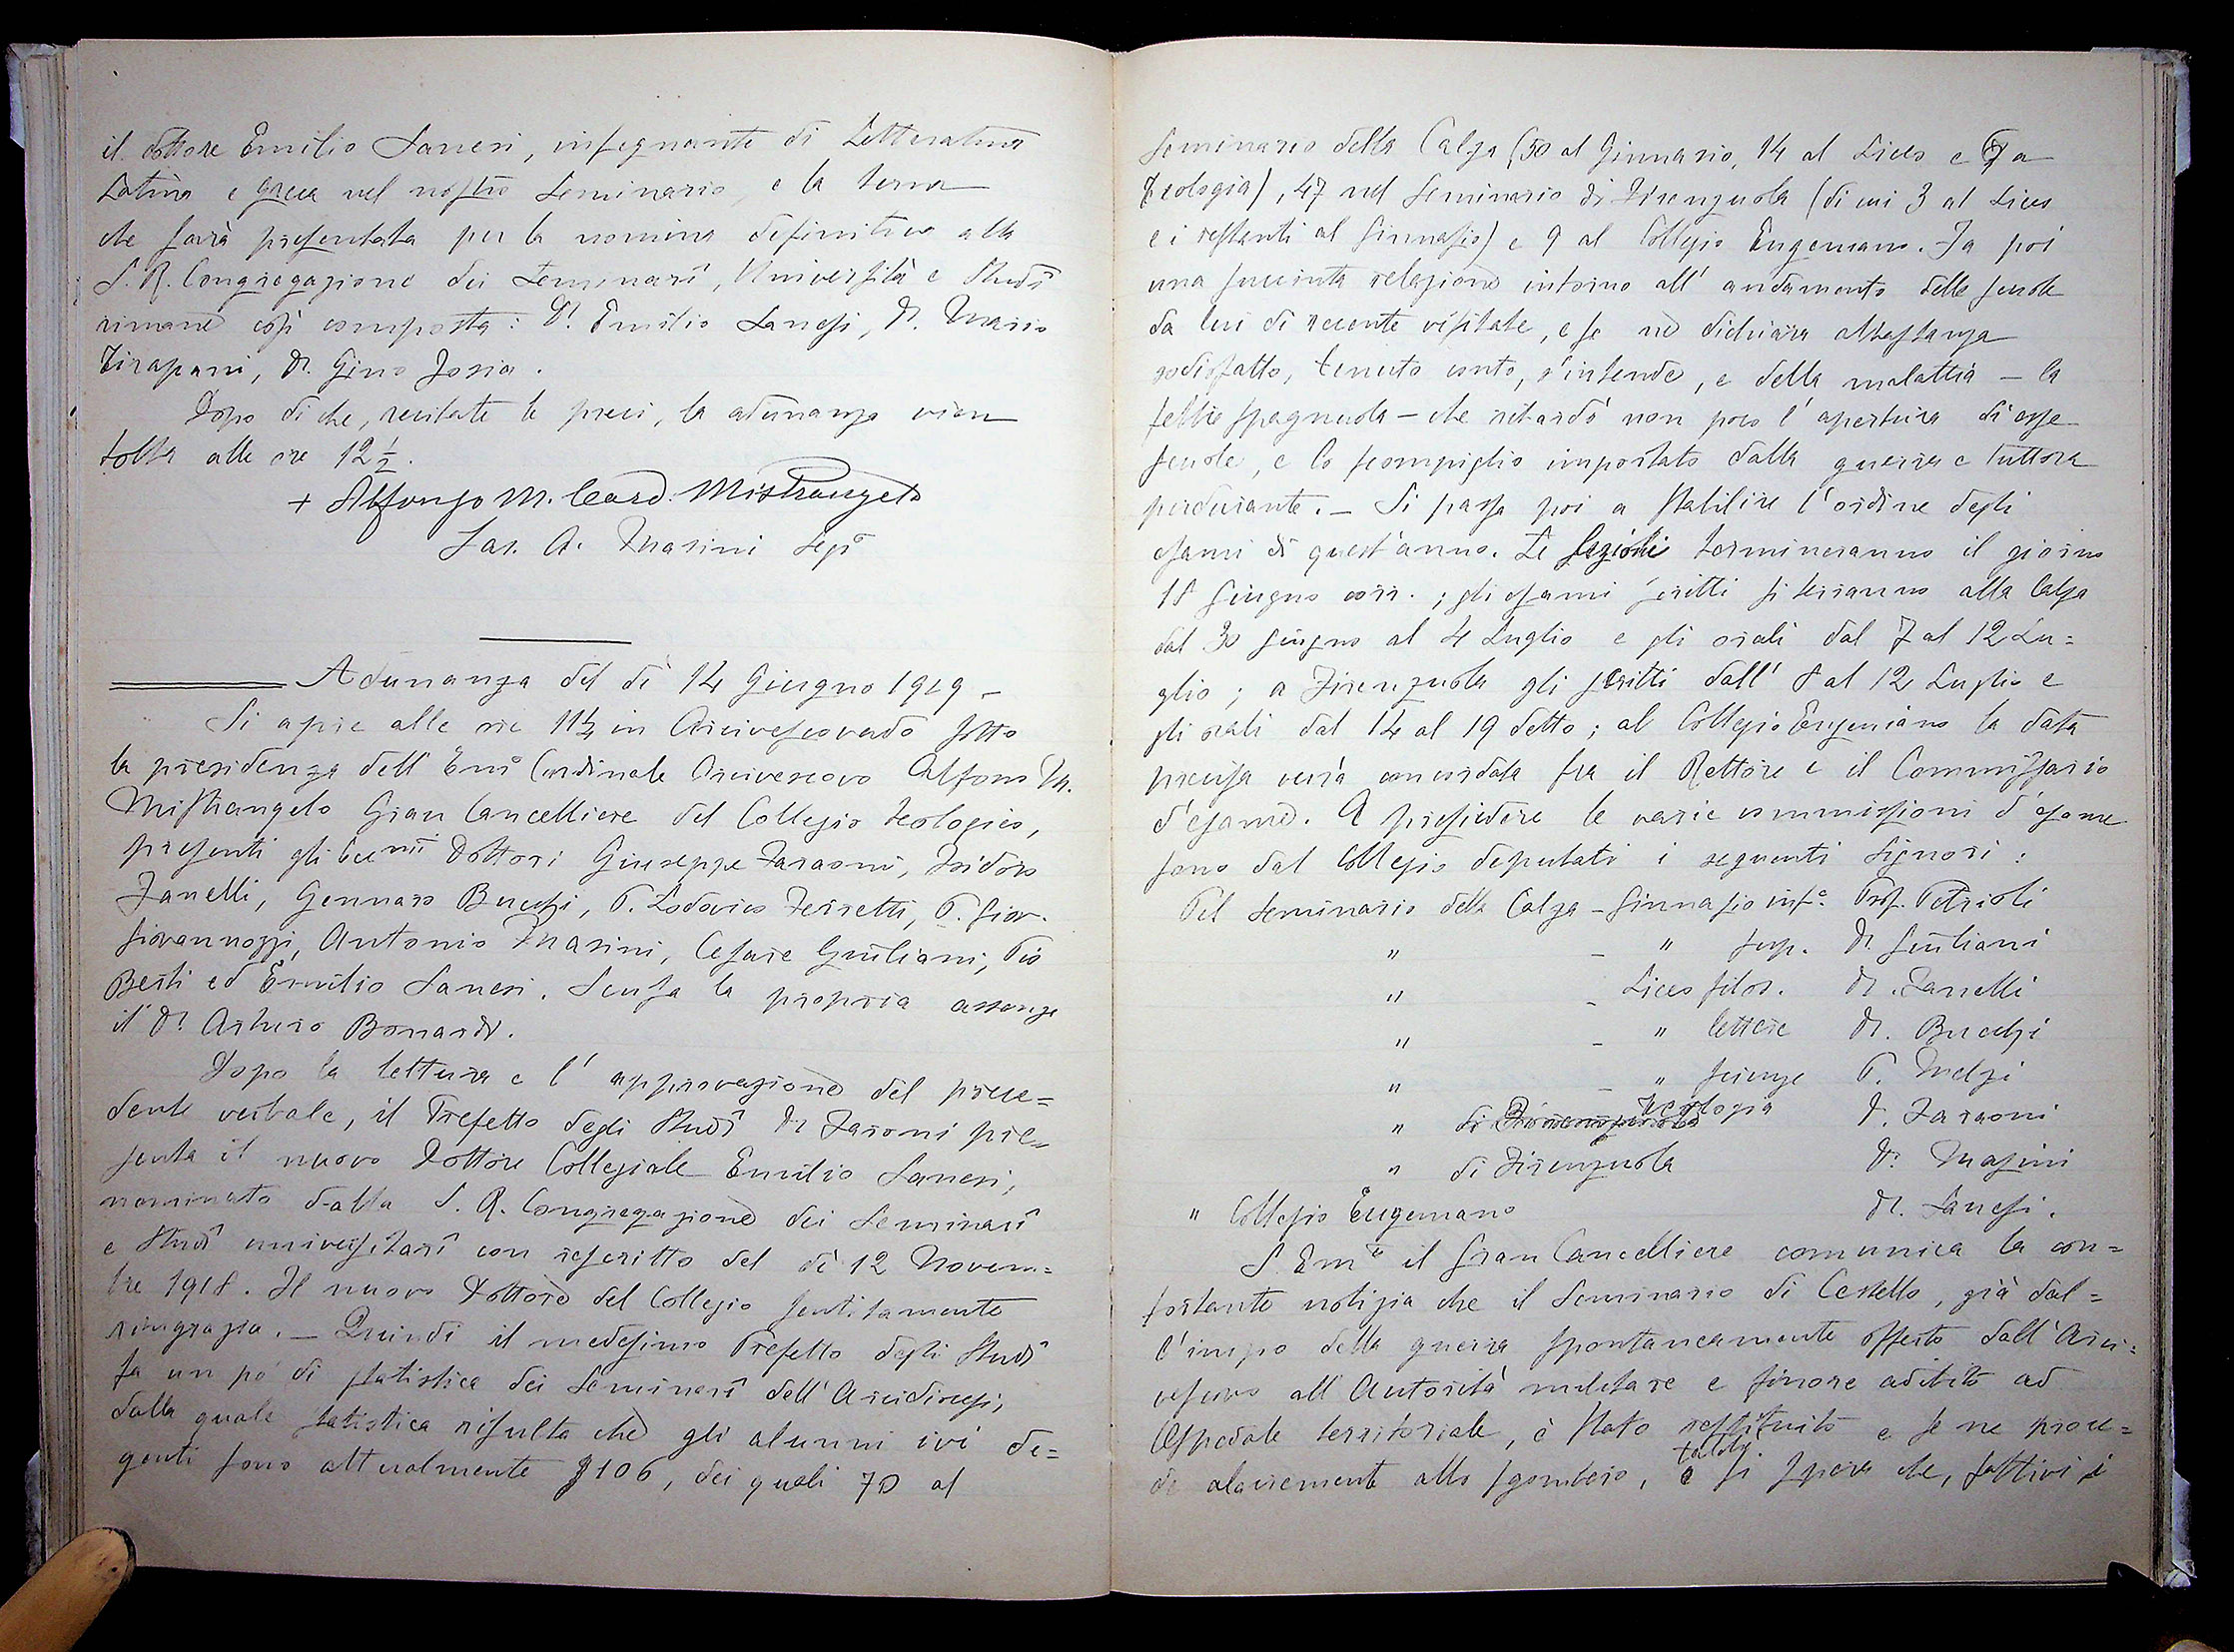 il dottore Emilio Sanesi, insegnante di Letteratura
Latina e greca nel nostro Seminario, e la terna
che sarà presentata per la nomina definitiva alla
S. R. Congregazione dei Seminarî, Università e Studî
rimane così composta: Dr. Emilio Sanesi, Dr. Mario
Tirapani, Dr. Gino Josia.
Dopo di che, recitate le preci, la adunanza vien
tolta alle ore 12½.
+ Alfonso M. Card. Mistrangelo
Sac. A. Masini Segr.o
Adunanza del dì 14 Giugno 1919 –
Si apre alle ore 11¼ in Arcivescovado sotto
la presidenza dell'Emo Cardinale Arcivescovo Alfonso M.
Mistrangelo Gran Cancelliere del Collegio teologico,
presenti gli Eccmi Dottori Giuseppe Faraoni, Isidoro
Zanelli, Gennaro Bucchi, P. Lodovico Ferretti, P. Giov.
Giovannozzi, Antonio Masini, Cesare Giuliani, Pio
Berti ed Emilio Sanesi. Scusa la propria assenza
il Dr. Arturo Bonardi.
Dopo la lettura e l'approvazione del prece=
dente verbale, il Prefetto degli Studî Dr Faraoni pre=
senta il nuovo Dottore Collegiale Emilio Sanesi,
nominato dalla S. R. Congregazione dei Seminarî
e Studî universitarî con rescritto del dì 12 Novem=
bre 1918. Il nuovo Dottore del Collegio sentitamente
ringrazia. – Quindi il medesimo Prefetto degli Studî
fa un pò di statistica dei Seminarî dell'Arcidiocesi,
dalla quale statistica risulta che gli alunni ivi de=
genti sono attualmente 106, dei quali 70 al
Seminario della Calza (50 al Ginnasio, 14 al Liceo e 6 a
Teologia), 47 nel Seminario di Firenzuola (di cui 3 al Liceo
e i restanti al Ginnasio) e 9 al Collegio Eugeniano. Fa poi
una succinta relazione intorno all'andamento delle scuole
da lui di recente visitate, e se ne dichiara abbastanza
sodisfatto, tenuto conto, s'intende, e della malattia – la
febbre spagnuola – che ritardò non poco l'apertura di esse
scuole, e lo scompiglio importato dalla guerra e tuttora
perdurante. – Si passa poi a stabilire l'ordine degli
esami di quest'anno. Le lezioni termineranno il giorno
18 Giugno corr.; gli esami scritti si terranno alla Calza
dal 30 giugno al 4 Luglio e gli orali dal 7 al 12 Lu=
glio; a Firenzuola gli scritti dall'8 al 12 Luglio e
gli orali dal 14 al 19 detto; al Collegio Eugeniano la data
precisa verrà concordata fra il Rettore e il Commissario
d'esame. A presiedere le varie commissioni d'esame
sono dal Collegio deputati i seguenti Signori:
Pel Seminario della Calza – Ginnasio inf.e Prof. Petrioli
" – " sup. Dr. Giuliani
" – Liceo filos. Dr. Zanelli
" – " lettere Dr. Bucchi
" – " scienze P. Melzi
" di Firenzuola Teologia Dr. Faraoni
" di Firenzuola Dr. Masini
" Collegio Eugeniano Dr. Sanesi.
S. Emza il Gran Cancelliere comunica la con=
fortante notizia che il Seminario di Cestello, già dal=
l'inizio della guerra spontaneamente offerto dall'Arci=
vescovo all'Autorità militare e finora adibito ad
Ospedale territoriale, è stato restituito e se ne proce=
de alacremente allo sgombero, e si spera che, fattivi i